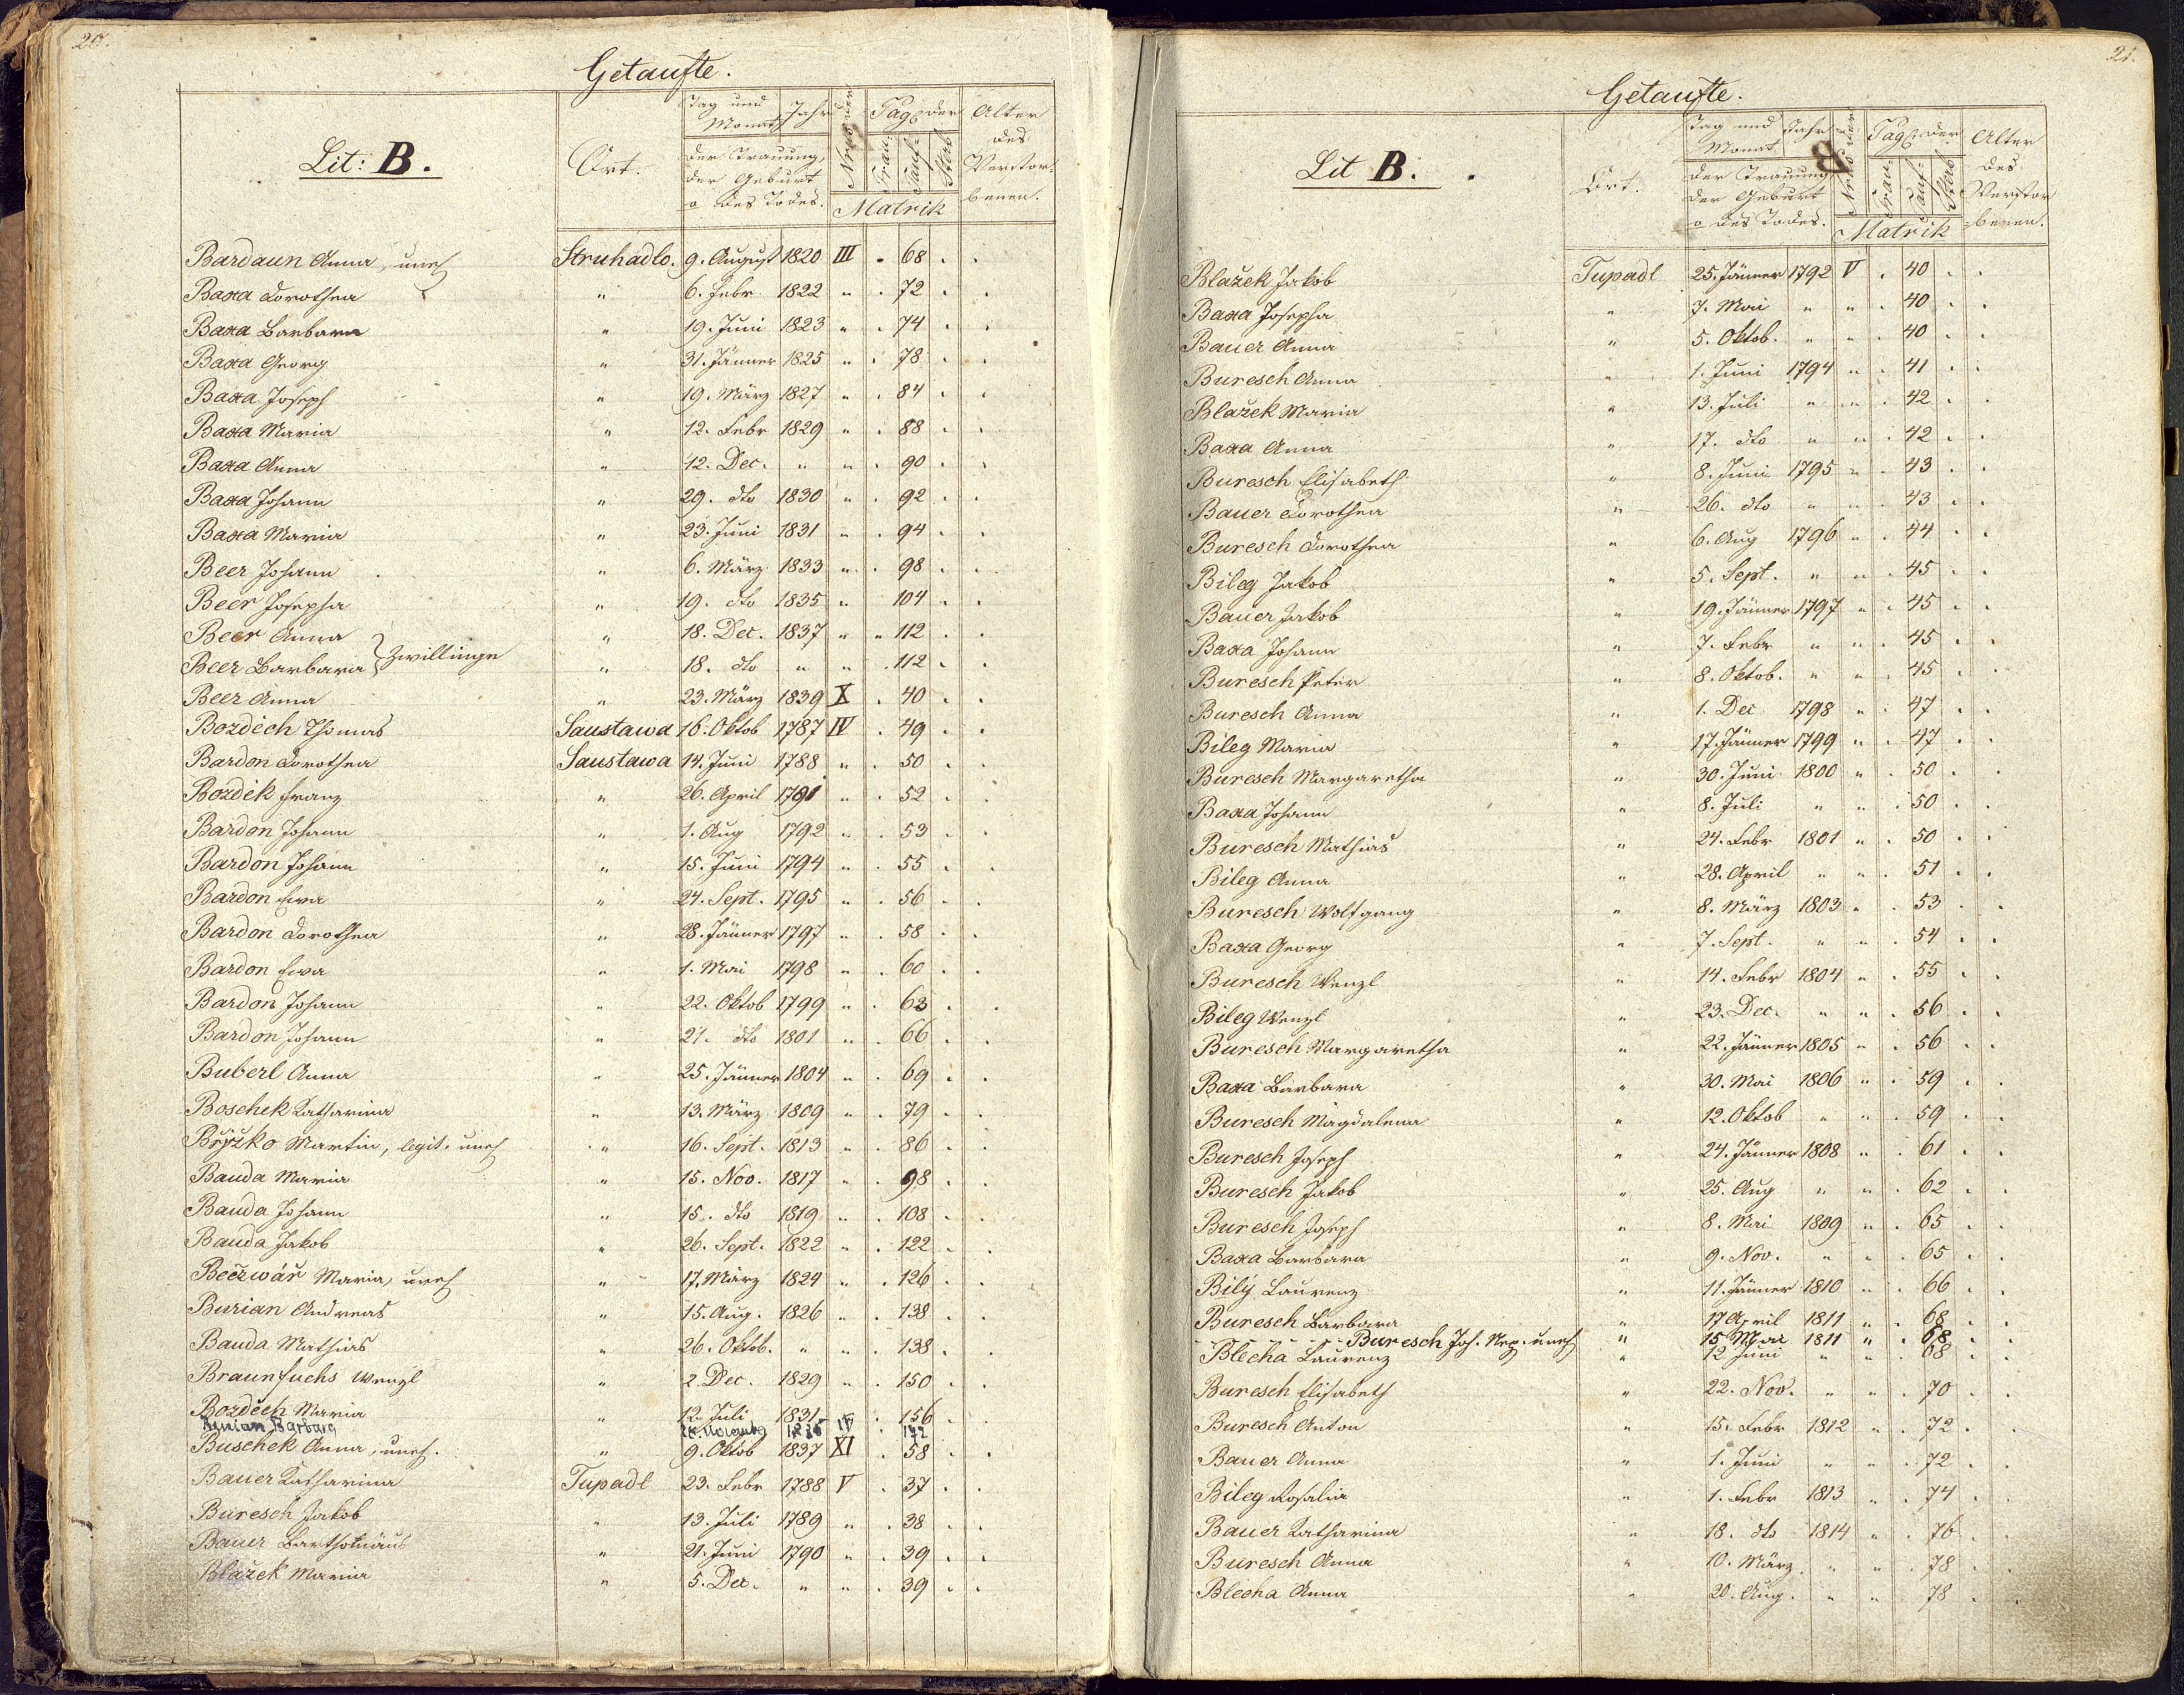 20.
Getaufte.
Lit: B.
Ort.
Tag und Monat
Jahr
der Trauung, der Geburt o des Todes.
Nro der
Pag: der
Trau-
Tauf-
Sterb
Matrik
Alter des Verstorbenen.
Bardaun Anna, uneh Struhadlo. 9. August 1820 III . 68 . .
Baxa Dorothea " 6. Febr. 1822 " . 72 . .
Baxa Barbara " 19. Juni 1823 " . 74 . .
Baxa Georg " 31. Jänner 1825 " . 78 . .
Baxa Joseph " 19. März 1827 " . 84 . .
Baxa Maria " 12. Febr 1829 " . 88 . .
Baxa Anna " 12. Dec. " " . 90 . .
Baxa Johann " 29. dto 1830 " . 92 . .
Baxa Maria " 23. Juni 1831 " . 94 . .
Beer Johann " 6. März 1833 " . 98 . .
Beer Josepha " 19. dto 1835 " 104 . .
Beer Anna " 18. Dec. 1837 " " 112 . .
Beer Barbara } Zwillinge " 18. dto " " . 112 . .
Beer Anna " 23. März 1839 X . 40 . .
Bozděch Thomas Saustawa 16. Oktob 1787 IV . 49 . .
Bardon Dorothea Saustawa 14. Juni 1788 " . 50 . .
Bozdék Franz " 26. April 1791 " . 52 . .
Bardon Johann " 1. Aug 1792 " . 53 . .
Bardon Johann " 15. Juni 1794 " . 55 . .
Bardon Ewa " 24. Sept. 1795 " . 56 . .
Bardon Dorothea " 28. Jänner 1797 " . 58 . .
Bardon Ewa " 1. Mai 1798 " . 60 . .
Bardon Johann " 22. Oktob 1799 " . 63 . .
Bardon Johann " 21. dto 1801 " . 66 . .
Buberl Anna " 25. Jänner 1804 " . 69 . .
Boschek Katharina " 13. März 1809 " . 79 . .
Bryžko Martin, legit. uneh " 16. Sept. 1813 " . 86 . .
Bauda Maria " 15. Nov. 1817 " . 98 . .
Bauda Johann " 15. dto 1819 " . 108 . .
Bauda Jakob " 26. Sept. 1822 " . 122 . .
Beczwář Maria, uneh " 17. März 1824 " . 126 . .
Burian Andreas " 15. Aug. 1826 " . 138 . .
Bauda Mathias " 26. Oktob. " " . 138 . .
Braunfuchs Wenzl " 2. Dec. 1829 " . 150 . .
Bozděch Maria " 12. Juli 1831 " . 156 . .
Burian Barbara November IV 172
Buschek Anna, uneh. " 9. Oktob 1837 XI . 58 . .
Bauer Katharina Tupadl 23. Febr 1788 V . 37 . .
Buresch Jakob " 13. Juli 1789 " . 38 . .
Bauer Bartholmäus " 21. Juni 1790 " . 39 . .
Blažek Maria " 5. Dec. " " . 39 . .
21.
Getaufte.
Lit B.
Ort.
Tag und Monat
Jahr
der Trauung der Geburt o des Todes.
Nro der
Pag: der
Trau-
Tauf-
Sterb
Matrik
Alter des Verstorbenen.
Blažek Jakob Tupadl 25. Jänner 1792 V . 40 . .
Baxa Josepha " 7. Mai " " . 40 . .
Bauer Anna " 5. Oktob. " " . 40 . .
Buresch Anna " 1. Juni 1794 " . 41 . .
Blažek Maria " 13. Juli " " . 42 . .
Baxa Anna " 17. dto " " . 42 . .
Buresch Elisabeth " 8. Juni 1795 " . 43 . .
Bauer Dorothea " 26. dto " " . 43 . .
Buresch Dorothea " 6. Aug 1796 " . 44 . .
Bileg Jakob " 5. Sept. " " . 45 . .
Bauer Jakob " 19. Jänner 1797 " . 45 . .
Baxa Johann " 7. Febr " " . 45 . .
Buresch Peter " 8. Oktob. " " . 45 . .
Buresch Anna " 1. Dec 1798 " . 47 . .
Bileg Maria " 17. Jänner 1799 " . 47 . .
Buresch Margaretha " 30. Juni 1800 " . 50 . .
Baxa Johann " 8. Juli " " . 50 . .
Buresch Mathias " 24. Febr 1801 " . 50 . .
Bileg Anna " 28. April " " . 51 . .
Buresch Wolfgang " 8. März 1803 " . 53 . .
Baxa Georg " 7. Sept. " " . 54 . .
Buresch Wenzl " 14. Febr 1804 " . 55 . .
Bileg Wenzl " 23. Dec. " " . 56 . .
Buresch Margaretha " 22. Jänner 1805 " . 56 . .
Baxa Barbara " 30. Mai 1806 " . 59 . .
Buresch Magdalena " 12. Oktob " " . 59 . .
Buresch Joseph " 24. Jänner 1808 " . 61 . .
Buresch Jakob " 25. Aug " " . 62 . .
Buresch Joseph " 8. Mai 1809 " . 65 . .
Baxa Barbara " 9. Nov. " " . 65 . .
Bilý Laurenz " 11. Jänner 1810 " . 66 . .
Buresch Barbara " 17 April 1811 " . 68 . .
Buresch Joh. Nep. uneh " 15 Mai 1811 " . 68 .
Blecha Laurenz " 12 Juni " " . 68 . .
Buresch Elisabeth " 22. Nov. " " . 70 . .
Buresch Anton " 15. Febr 1812 " . 72 . .
Bauer Anna " 1. Juni " " . 72 . .
Bileg Rosalia " 1. Febr 1813 " . 74 . .
Bauer Katharina " 18. dto 1814 " . 76 . .
Buresch Anna " 10. März. " " . 78 . .
Blecha Anna " 20. Aug. " " . 78 . .